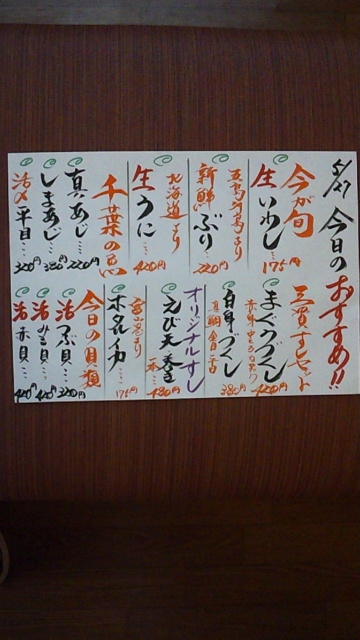 5/27 今日のおすすめ!!
今が旬
生いわし… 175円
五島列島より
新鮮ぶり… 220円
北海道より
生うに… 420円
千葉の魚
真あじ… 220円
しまあじ… 320円
活〆平目… 320円
三貫すしセット
まぐろづくし
420円
白身づくし
380円
オリジナルすし
えび天巻
一本… 480円
富山県より
ホタルイカ…
175円
今日の貝類
活つぶ貝… 320円
活みる貝… 420円
活赤貝… 420円